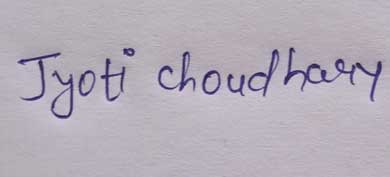 Jyoti choudhary